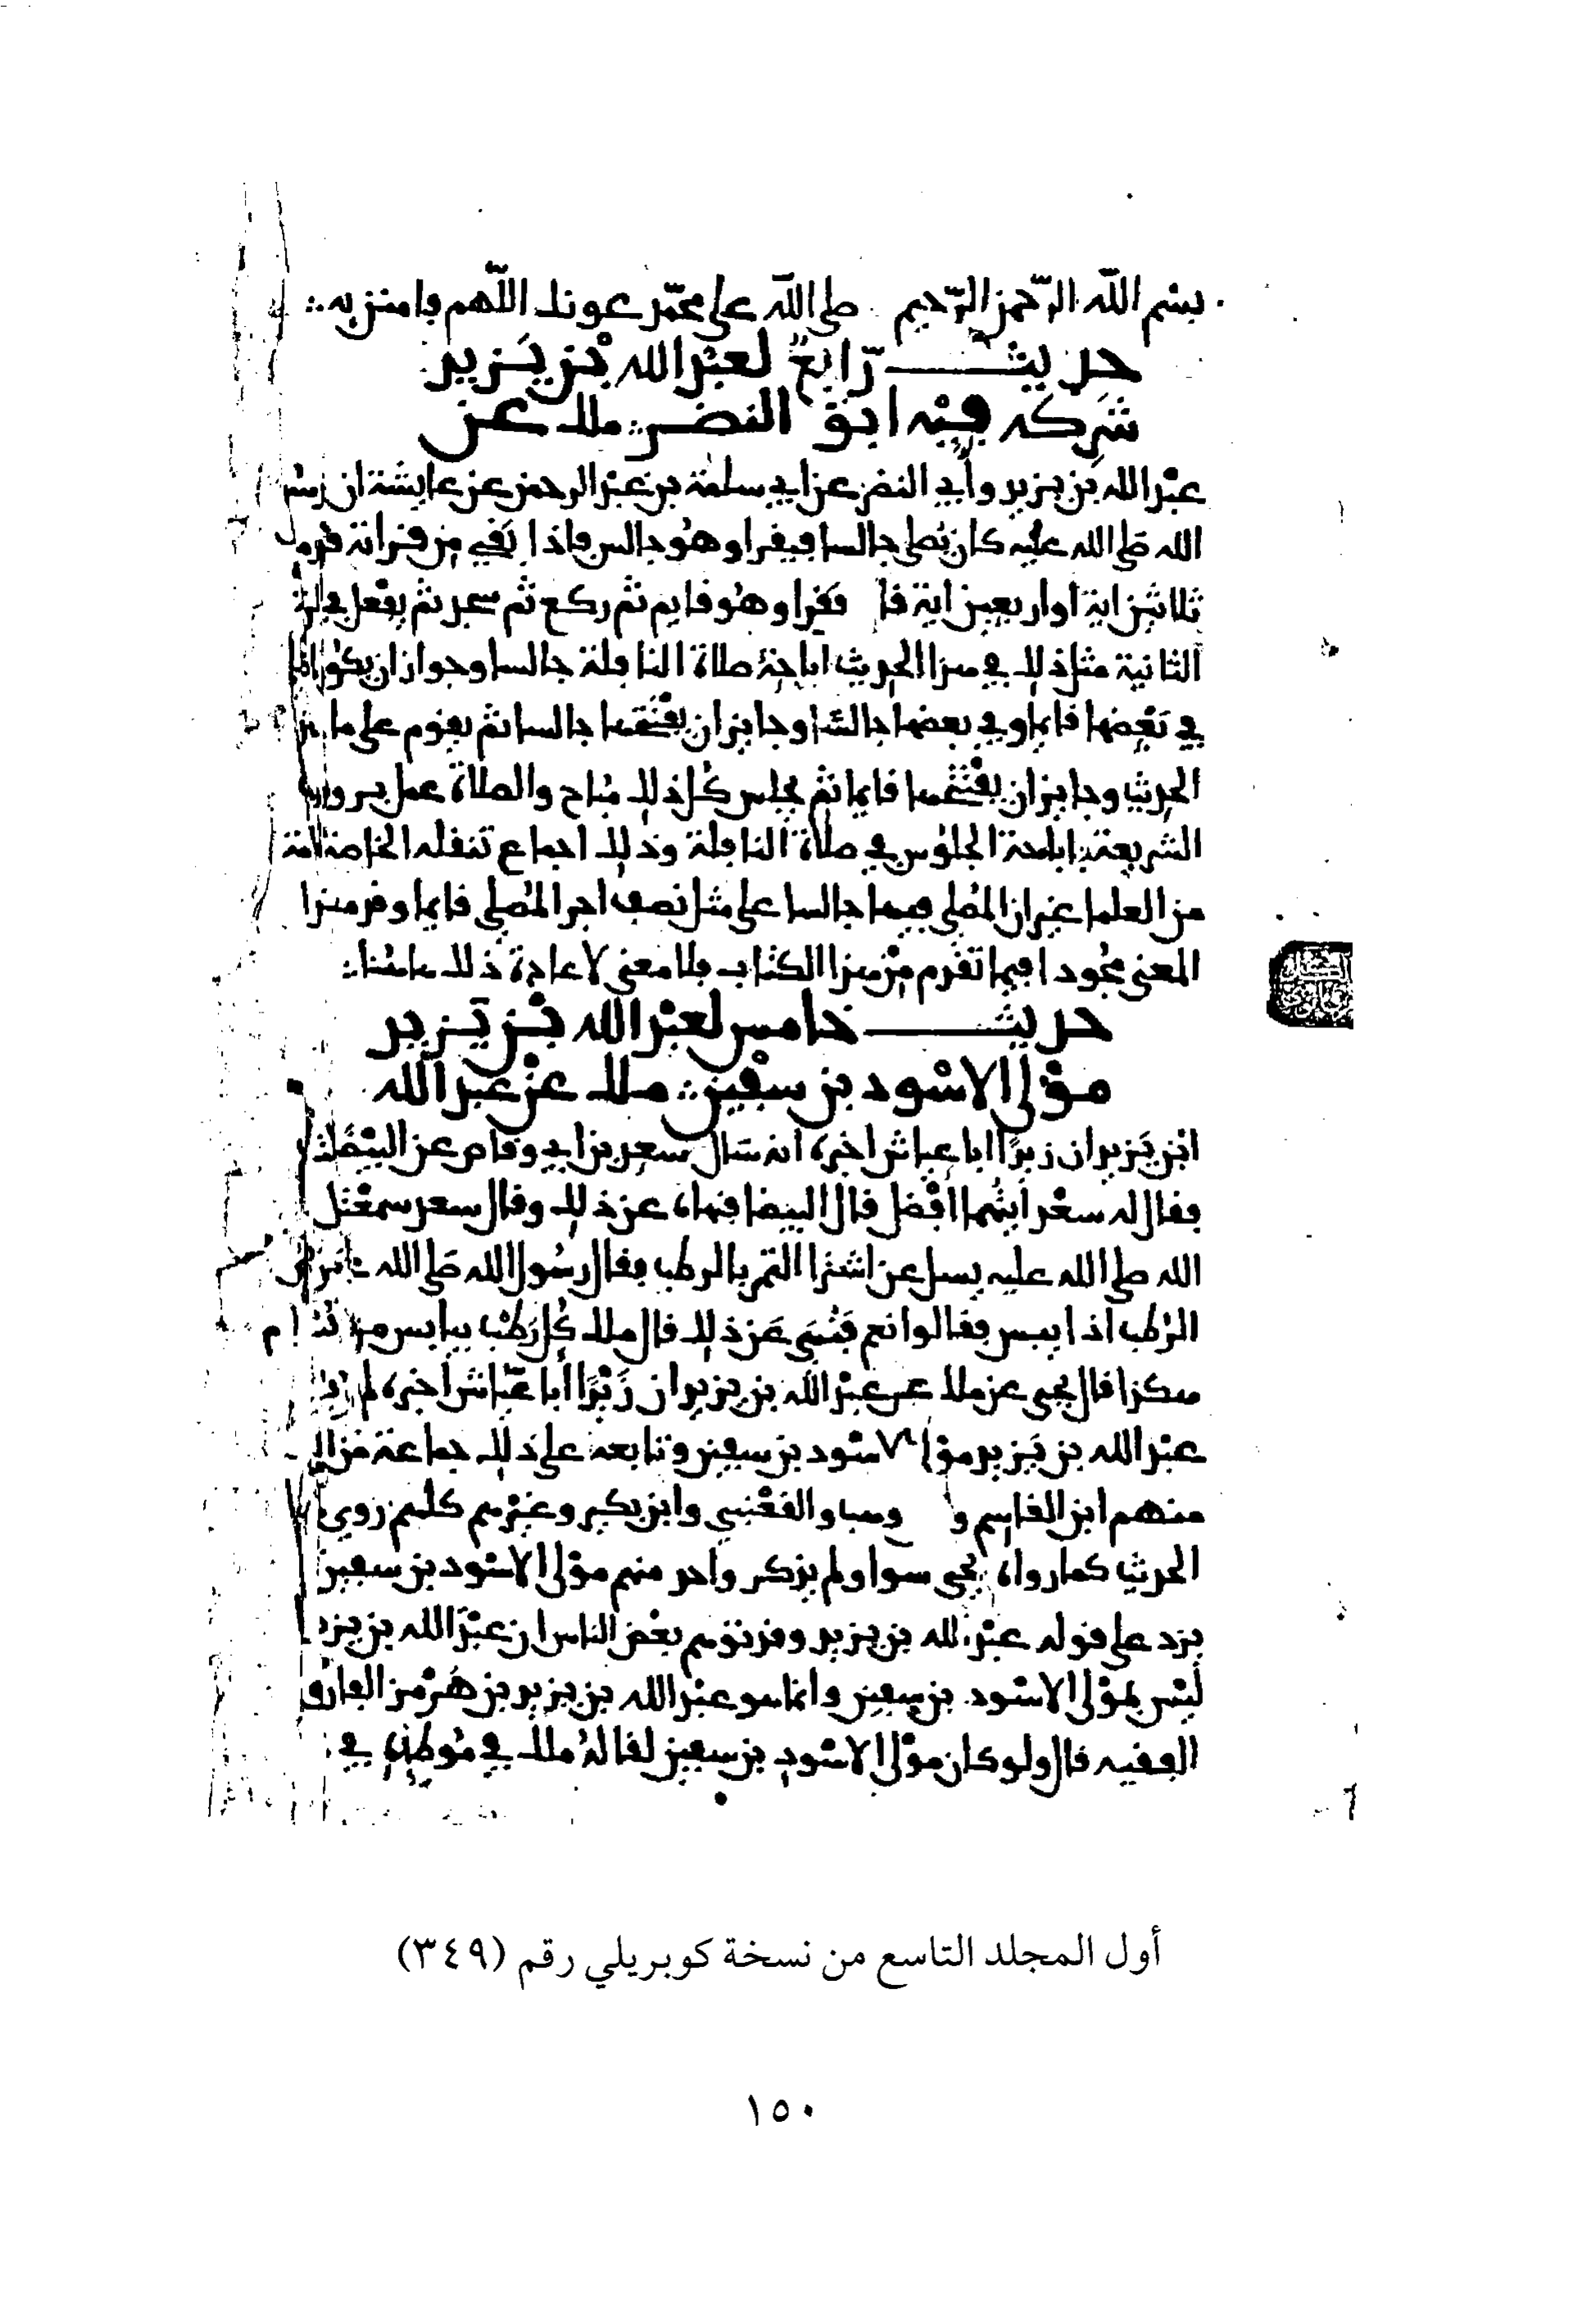 بسم الله الرحمن الرحيم صلى الله على محمد عونك اللهم فامنن به
حديث رابع لعبد الله بن يزيد
شركه فيه ابو النضر ملك عن
عبد الله بن يزيد وأبي النضر عن ابي سلمة بن عبد الرحمن عن عايشة ان رسو
الله صلى الله عليه كان يصلي جالسا فيقرا وهو جالس فاذا بقي من قراته قدر ما
ثلاثين اية او اربعين اية قا فقرا وهو قايم ثم ركع ثم سجد ثم يفعل في الر
الثانية مثل ذلك في هذا الحديث اباحة صلاة النافلة جالسا وجواز ان يكون
في بعضها قايما وفي بعضها جالسا وجايز ان يفتتحها جالسا ثم يقوم على ما
الحديث وجايز ان يفتتحها قايما ثم يجلس كل ذلك مباح والصلاة عمل بر
الشريعة باباحة الجلوس في صلاة النافلة وذلك اجماع تنقله الخاصة
من العلما غير ان المصلي فيها جالسا على مثل نصف اجر المصلي قايما وقد مر هذا
المعنى مجودا فيما تقدم من هذا الكتاب فلا معنى لاعادة ذلك هاهنا
حديث خامس لعبد الله بن يزيد
مولى الاسود بن سفين ملك عن عبد الله
ابن يزيد ان زيدا ابا عياش اخبره انه سال سعد بن ابي وقاص عن البيضا
فقال له سعد ايتهما افضل قال البيضا فنهاه عن ذلك وقال سعد سمعت
الله صلى الله عليه يسل عن اشترا التمر بالرطب فقال رسول الله صلى الله
الرطب اذا يبس فقالوا نعم فنهى عن ذلك قال ملك كل رطب بيابس من
هكذا قال يحيى عن ملك عن عبد الله بن يزيد ان زيدا أبا عياش اخبره لم
عبد الله بن يزيد مولى الاسود بن سفين وتابعه على ذلك جماعة من
منهم ابن القاسم و وهب والقعنبي وابن بكير وغيرهم كلهم روى
الحديث كما رواه يحيى سوا ولم يذكر واحد منهم مولى الاسود بن سفين
يزد على قوله عبد الله بن يزيد وقد توهم بعض الناس ان عبد الله بن يزيد
ليس بمولى الاسود بن سفين وانما هو عبد الله بن يزيد بن هرمز القارئ
الفقيه قال ولو كان مولى الاسود بن سفين لقاله ملك في موطئه في
أول المجلد التاسع من نسخة كوبريلي رقم (٣٤٩)
١٥٠